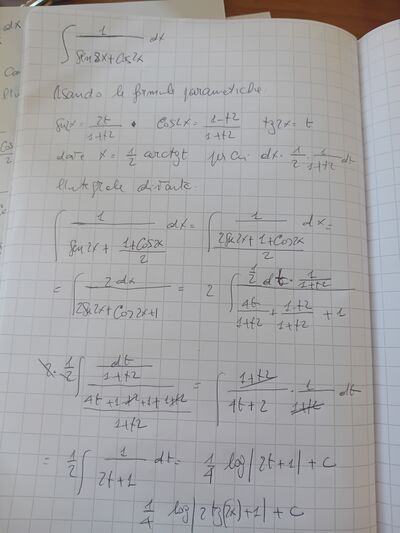 ∫ 1/(sen2x+cos2x) dx
Usando le formule parametriche
sen2x = 2t/(1+t2) • cos2x = 1-t2/(1+t2) tg2x = t
dove x = 1/2 arctgt per cui dx = 1/2 · 1/(1+t2) dt
L'integrale diventa
∫ 1/(sen2x + (1+cos2x)/2) dx = ∫ 1/((2sen2x+1+cos2x)/2) dx =
= ∫ 2dx/(2sen2x+cos2x+1) = 2 ∫ (1/2 dt · 1/(1+t2))/(4t/(1+t2) + (1-t2)/(1+t2) + 1)
2 · 1/2 ∫ (dt/(1+t2))/((4t+1-t2+1+t2)/(1+t2)) = ∫ (1+t2)/(4t+2) · 1/(1+t2) dt
= 1/2 ∫ 1/(2t+1) dt = 1/4 log|2t+1| + c
1/4 log|2tg(2x)+1| + c